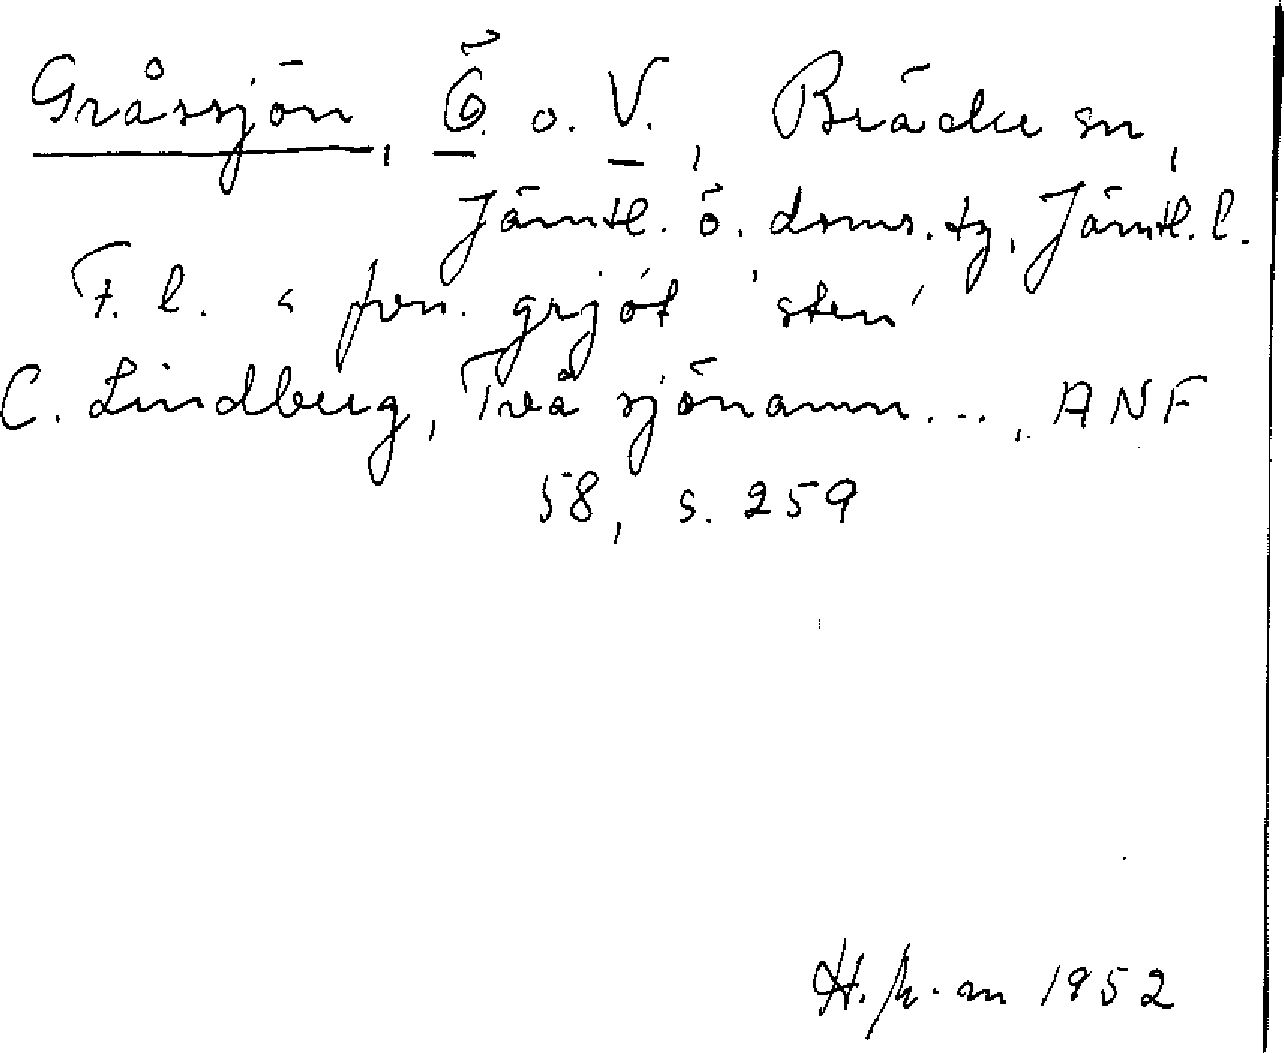 Gråssjön, Ö. o. V., Bräcke sn,
Jämtl. ö. doms. tg, Jämtl. l.
F. l. < fvn. grjót 'sten'
C. Lindberg, Två sjönamn..., ANF
58, s. 259
1952